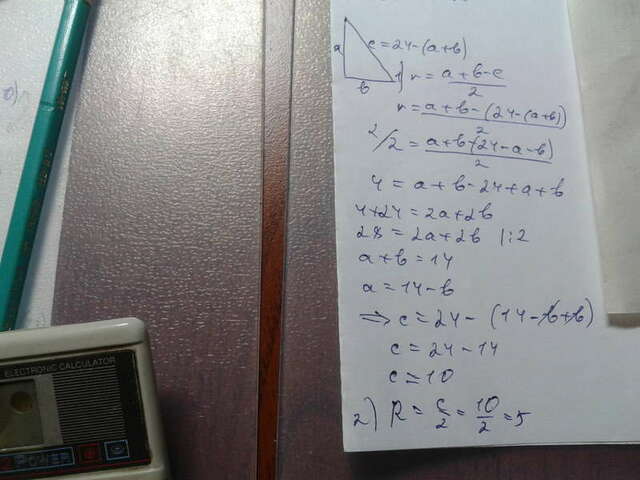 a
c=24-(a+b)
b
1) r = a+b-c / 2
r = a+b-(24-(a+b)) / 2
2/2 = a+b-(24-a-b) / 2
4 = a+b-24+a+b
4+24 = 2a+2b
28 = 2a+2b |:2
a+b=14
a=14-b
⇒ c=24-(14-b+b)
c=24-14
c=10
2) R = c/2 = 10/2 = 5
ELECTRONIC CALCULATOR
POWER